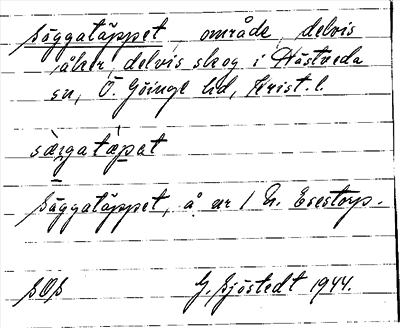 säggatäppet, område, delvis
åker, delvis skog i Hästveda
sn, Ö. Göinge hd, Krist. l.
säggatäppet, å nr 1 N. Esestorp.
G. Sjöstedt 1944.